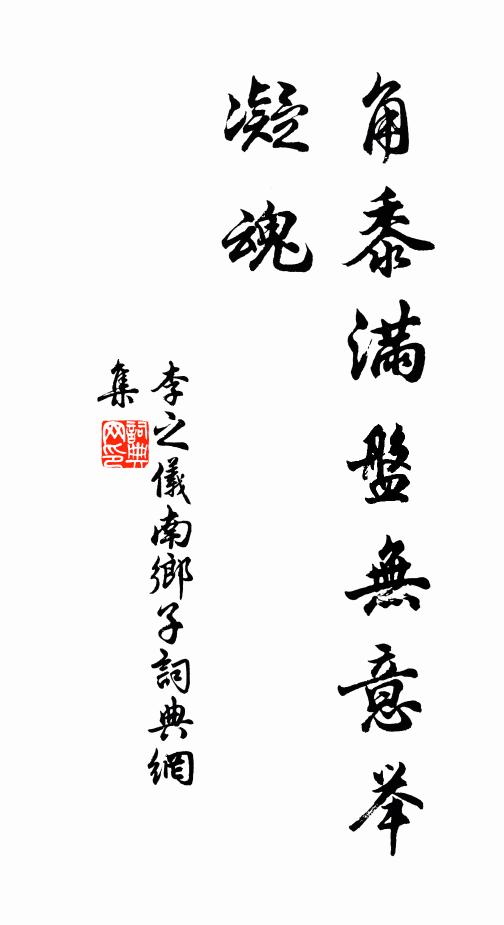 角黍滿盤無意举
凝魂
李之儀南鄉子詞典網
集
詞典网印